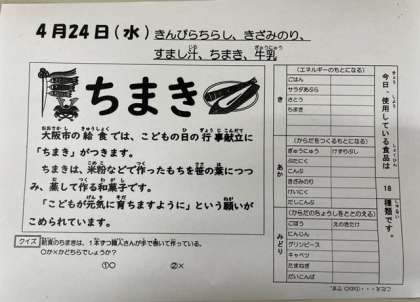 4月24日(水) きんぴらちらし、きざみのり、
すまし汁、ちまき、牛乳
ちまき
大阪市の給食では、こどもの日の行事献立に
「ちまき」がつきます。
ちまきは、米粉などで作ったもちを笹の葉につつ
み、蒸して作る和菓子です。
「こどもが元気に育ちますように」という願いが
こめられています。
クイズ 給食のちまきは、1本ずつ職人さんが手で巻いて作っている。
○か×かどちらでしょうか?
①○ ②×
今日、使用している食品は 18 種類です。
き
(エネルギーのもとになる)
ごはん
サラダあぶら
さとう
ちまき
あか
(からだをつくるもとになる)
ぎゅうにゅう けずりぶし
ぶたにく
こんぶ
きざみのり
けいにく
だしこんぶ
みどり
(からだのちょうしをととのえる)
ごぼう えのきたけ
にんじん
グリンピース
キャベツ
たまねぎ
だいこんば